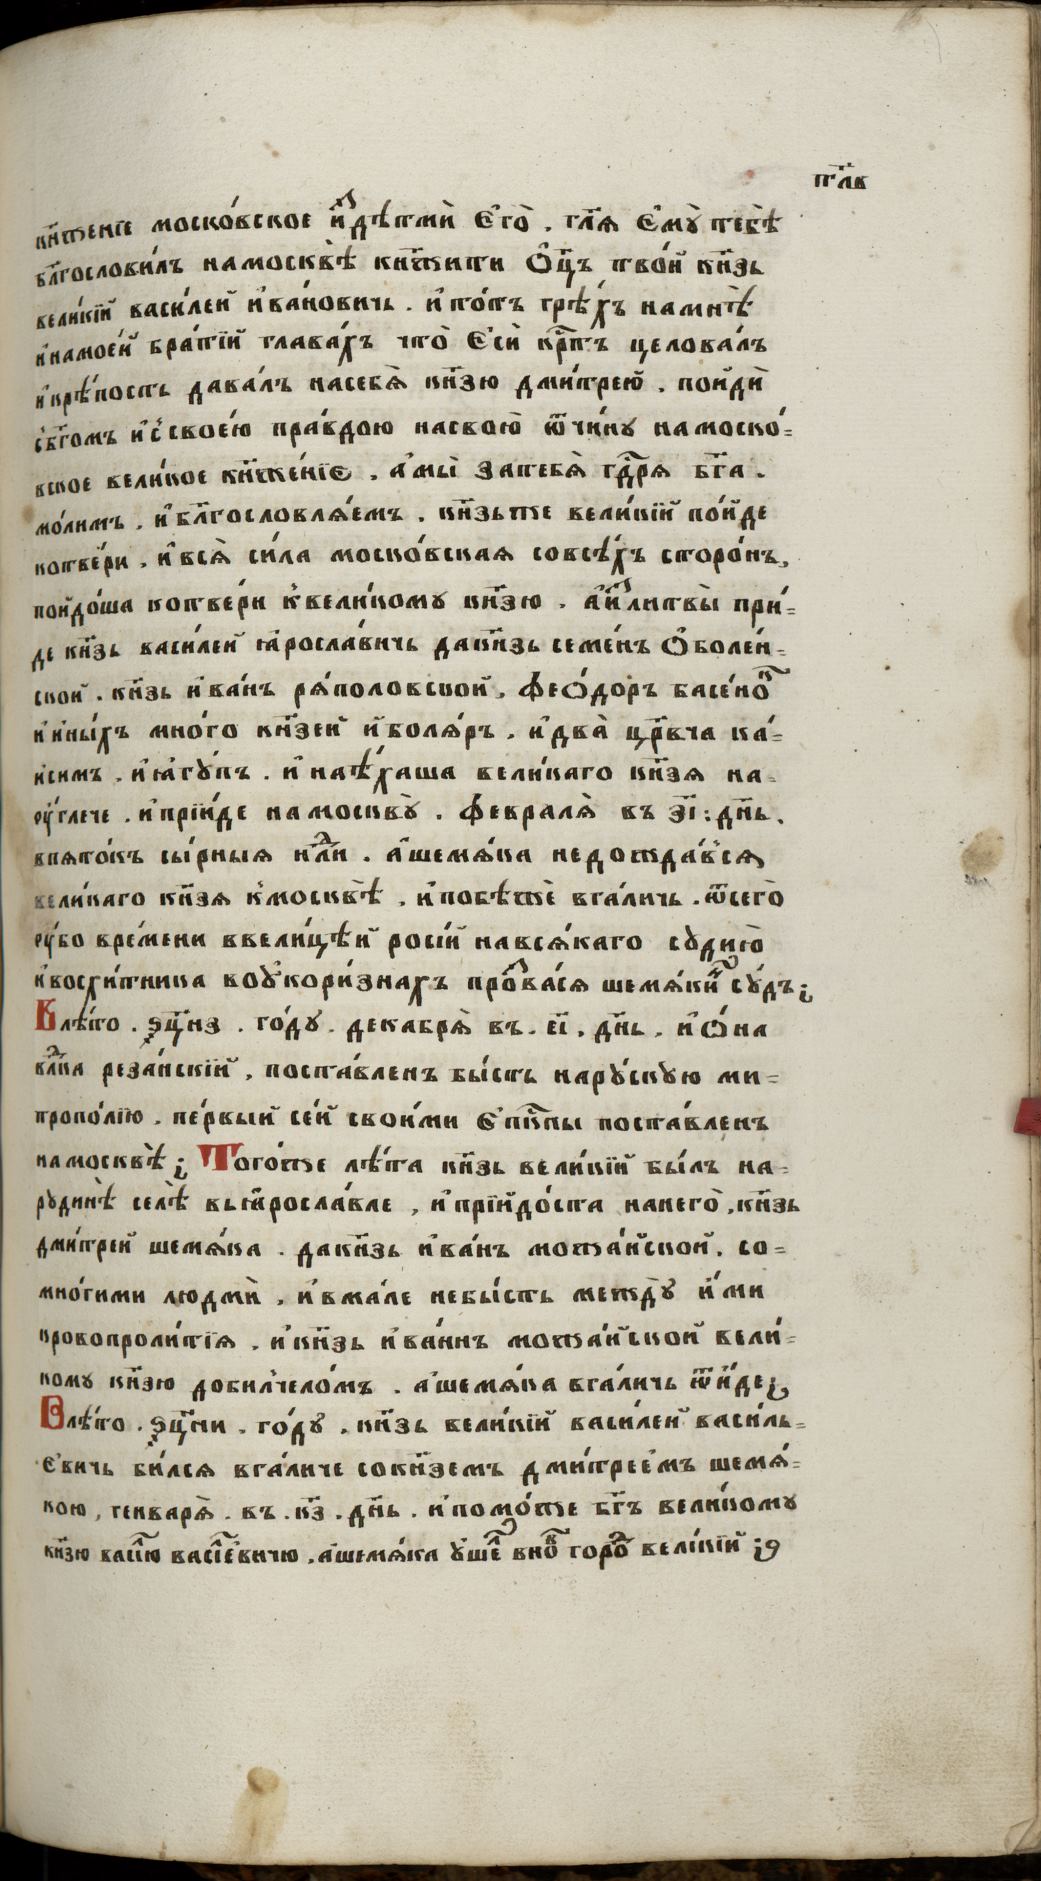 тл҃в
кн҃женїе моско́вское и҆ з дѣтмѝ є҆гѡ̀ . гл҃я є҆мꙋ̀ тебѣ̀
бл҃гослови́лъ намосквѣ̀ кн҃жити ѻ҆ц҃ъ тво́й кн҃зь
вели́кїй васи́лей и҆ва́новичь . и҆ то́тъ грѣ́хъ намнѣ̀
и҆намое́й бра́тїй глава́хъ что̀ є҆сѝ кр҃тъ целова́лъ
и҆крѣ́пость дава́лъ насебѧ̀ кн҃зю дми́трею̀ . пойдѝ
сбг҃омъ и҆ с свое́ю пра́вдою насвою̀ ѿчи́нꙋ намоско́=
вское вели́кое кн҃же́нїе . а҆мы̀ затебѧ̀ гдⷭ҇рѧ бг҃а .
мо́лимъ . и҆бл҃гословлѧ́емъ . кн҃зьже вели́кїй по́йде
котве́ри . и҆всѧ̀ си́ла моско́вская совсѣ́хъ сторо́нъ,
пойдо́ша котве́ри к̾вели́комꙋ кн҃зю . а҆ и҆з литвы̀ прі́=
де кн҃зь васи́лей ꙗ҆росла́вичь дакн҃зь семе́нъ ѻ҆боле́н=
ской . кн҃зь и҆ва́нъ рѧ́половской , ѳеѻ́доръ басе́нокъ
и҆ и҆ны́хъ мно́го кн҃зей и҆ болѧ́ръ . и҆ два̀ цр҃вча ка́=
исимъ . и҆ ꙗ҆гꙋ́пъ . и҆ наѣ́хаша вели́каго кн҃зя на=
ѹ҆́глече . и҆ прїи́де намосквꙋ̀ . февралѧ̀ въ з҃і : дн҃ь .
впято́къ сы́рныя нлⷣи . а҆шемѧ́ка недожда́всѧ
вели́каго кн҃зя к̾москвѣ̀ , и҆побѣжѐ вга́личь . ѿсегѡ̀
ѹ҆́бо вре́мени ввели́цѣй росі́й навсѧ́каго сꙋдїю̀
и҆восхи́тника воѹ҆кори́знахъ прозва́ся шемѧ́кинъ сꙋ́дъ ;
Влѣ́то . ҂ѕц҃нз . го́дꙋ . декабрѧ̀ въ . е҃і . дн҃ь . и҆ѻ́на
влⷣка реза́нскїй , поста́вленъ бы́сть нарꙋ́скꙋю ми=
трополі́ю . пе́рвый се́й свои́ми є҆пⷭ҇кпы поста́вленъ
намосквѣ̀ ; Того́же лѣ́та кн҃зь вели́кїй бы́лъ на=
рꙋдинѣ̀ селѣ̀ въꙗ҆росла́вле , и҆прїйдо́ста нанегѡ̀ . кн҃зь
дми́трей шемѧ́ка . дакн҃зь и҆ва́нъ можа́йской . со=
мно́гими людмѝ , и҆вма́ле небы́сть междꙋ̀ и́ми
кровопроли́тїя . и҆ кн҃зь и҆ва́ннъ можа́йской вели́=
комꙋ кн҃зю доби́лчело́мъ . а҆шемѧ́ка вга́личь ѿи́де ;
Влѣ́то . ҂ѕц҃ни . го́дꙋ . кн҃зь вели́кїй васи́лей васи́ль=
є҆вичь би́лся вга́личе сокн҃земъ дми́трее́мъ шемѧ́=
кою , генварѧ̀ . въ . к҃з . дн҃ь . и҆помо́же бг҃ъ вели́комꙋ
кн҃зю васїлю васїлє҆́вичю , а҆шемѧ́ка ꙋ҆шелъ вновъ горо́дъ вели́кїй ;